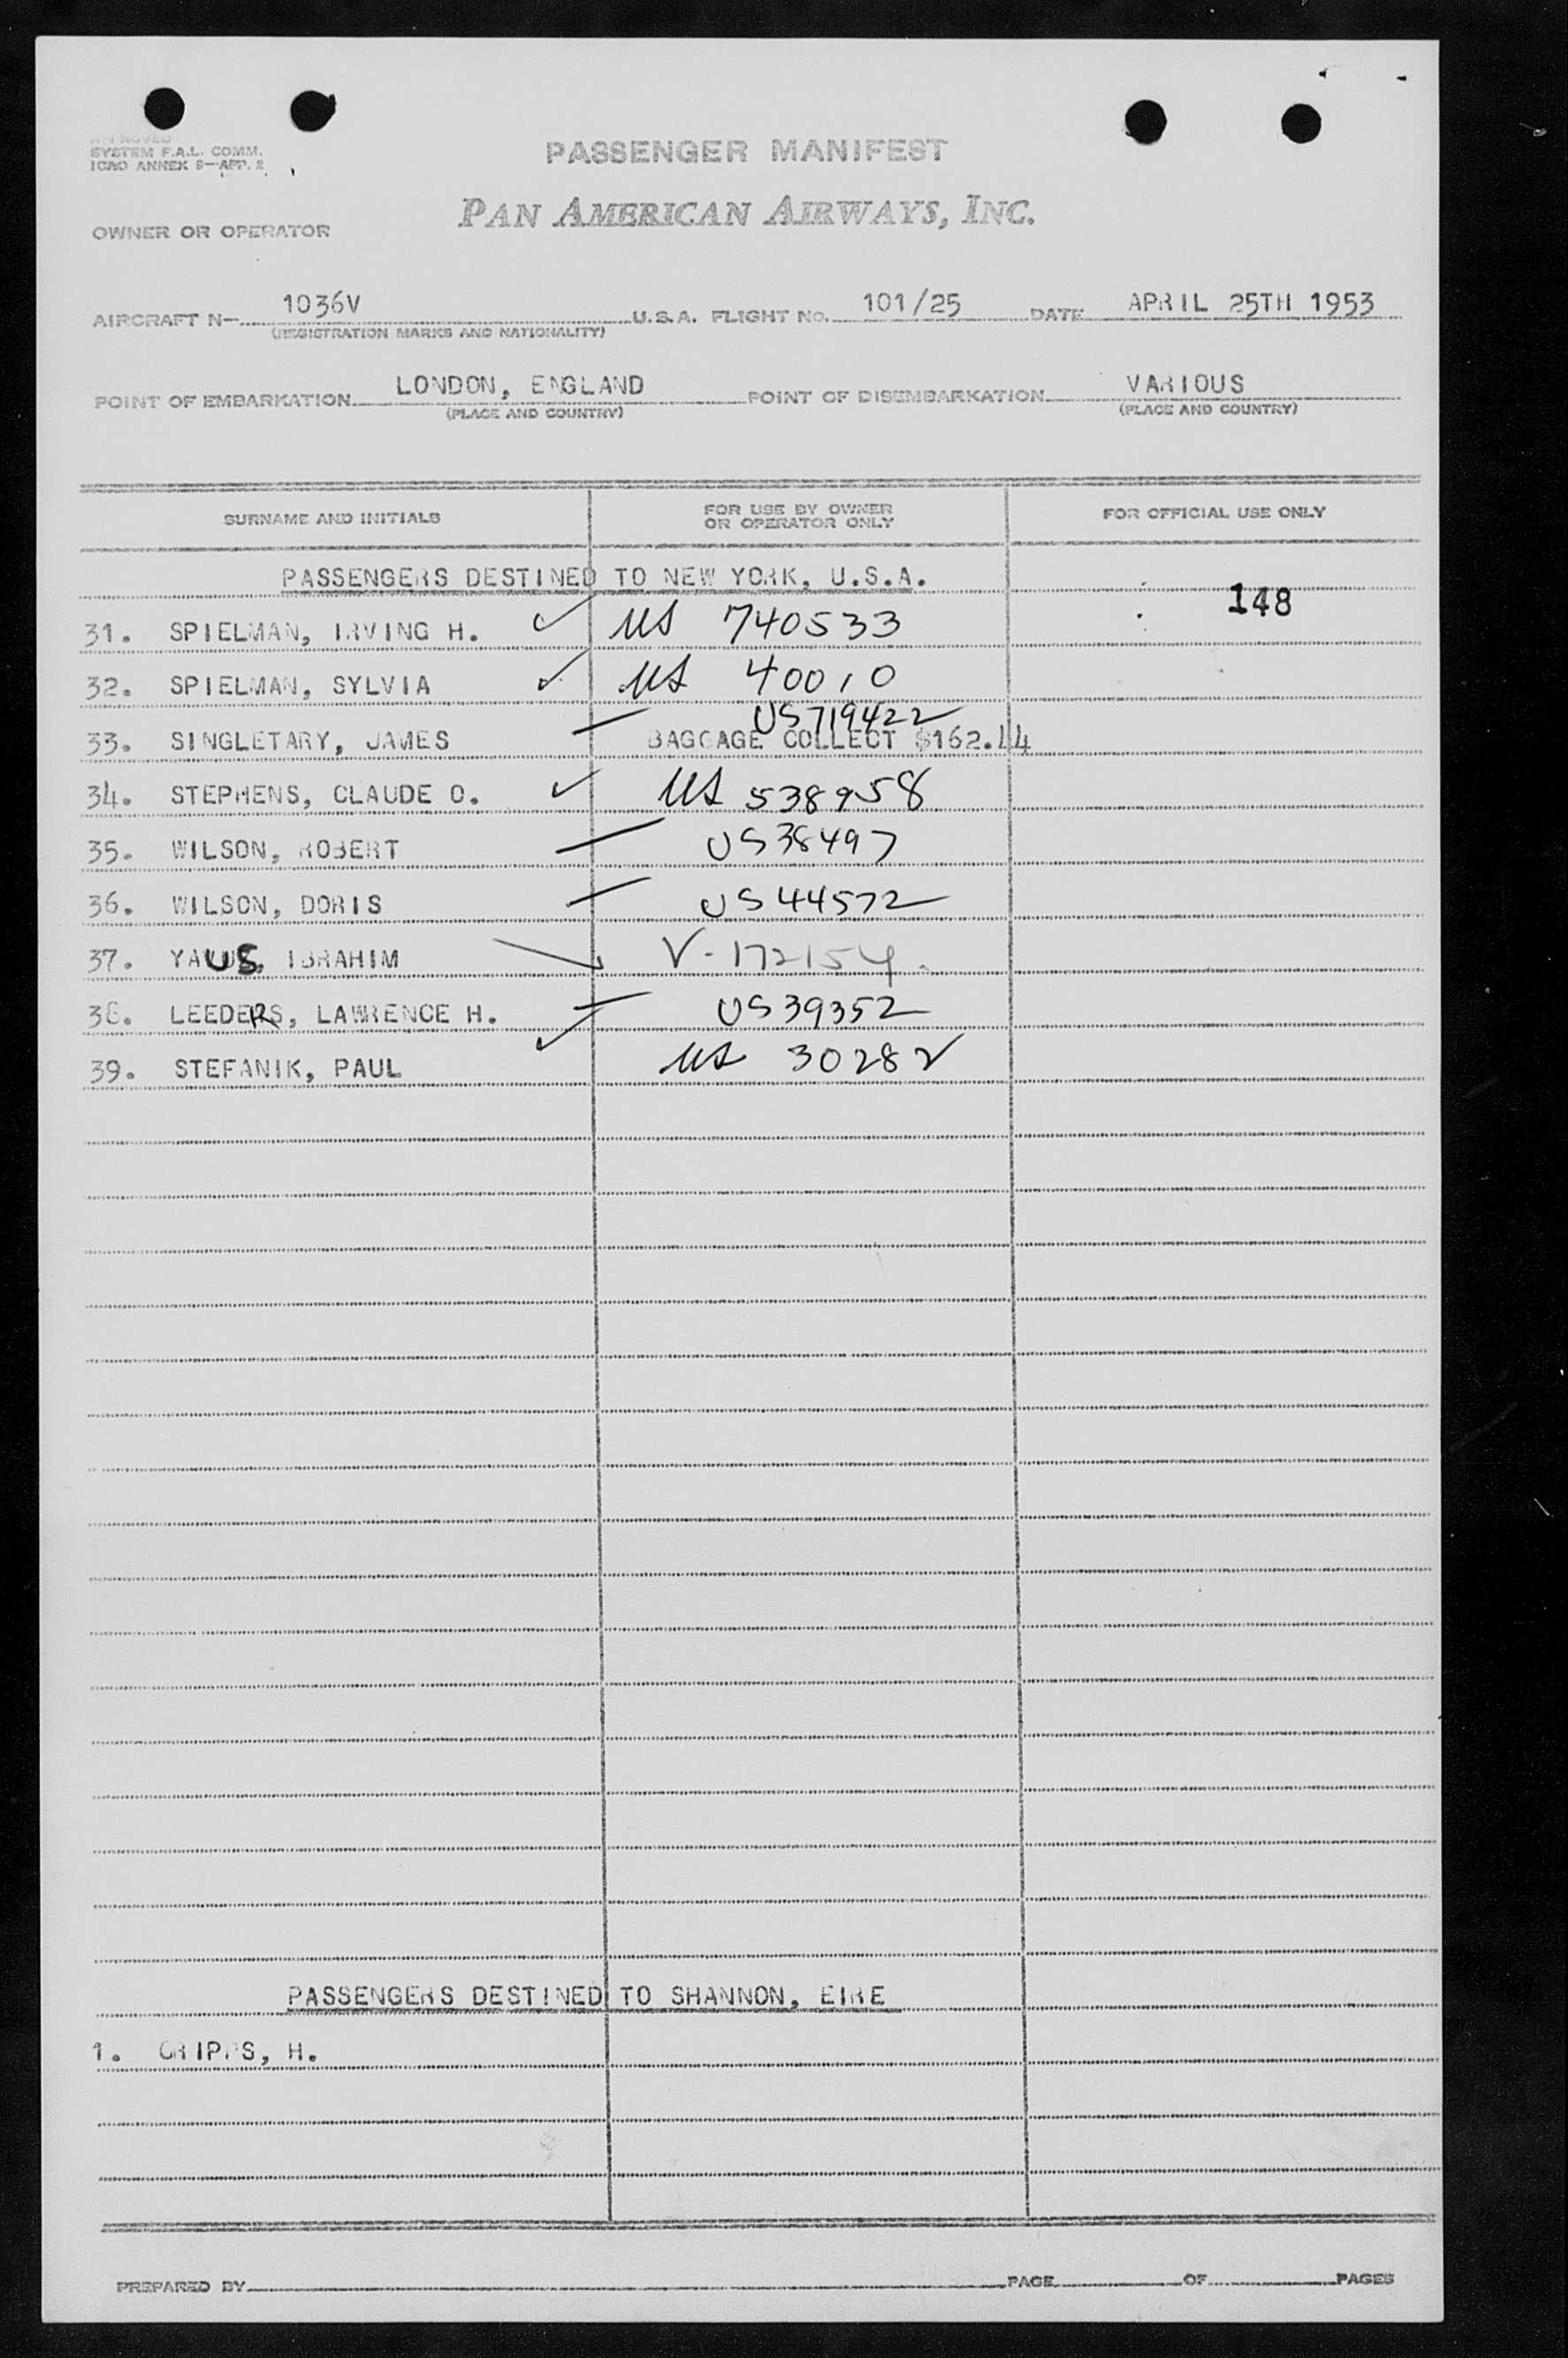 APPROVED
SYSTEM F.A.L. COMM.
ICAO ANNEX 9—APP. 2
PASSENGER MANIFEST
OWNER OR OPERATOR
PAN AMERICAN AIRWAYS, INC.
AIRCRAFT N— 1036V U.S.A. FLIGHT NO. 101/25 DATE APRIL 25TH 1953
(REGISTRATION MARKS AND NATIONALITY)
POINT OF EMBARKATION LONDON, ENGLAND POINT OF DISEMBARKATION VARIOUS
(PLACE AND COUNTRY) (PLACE AND COUNTRY)
SURNAME AND INITIALS FOR USE BY OWNER OR OPERATOR ONLY FOR OFFICIAL USE ONLY
PASSENGERS DESTINED TO NEW YORK, U.S.A.
148
31. SPIELMAN, IRVING H. ✓ US 740533
32. SPIELMAN, SYLVIA ✓ US 40010
US719422
33. SINGLETARY, JAMES — BAGGAGE COLLECT $162.44
34. STEPHENS, CLAUDE O. ✓ US 538958
35. WILSON, ROBERT — US38497
36. WILSON, DORIS — US44572
37. IBRAHIM V-172154
38. LEEDERS, LAWRENCE H. — US39352
39. STEFANIK, PAUL ✓ US 30282
PASSENGERS DESTINED TO SHANNON, EIRE
1. CRIPPS, H.
PREPARED BY PAGE OF PAGES